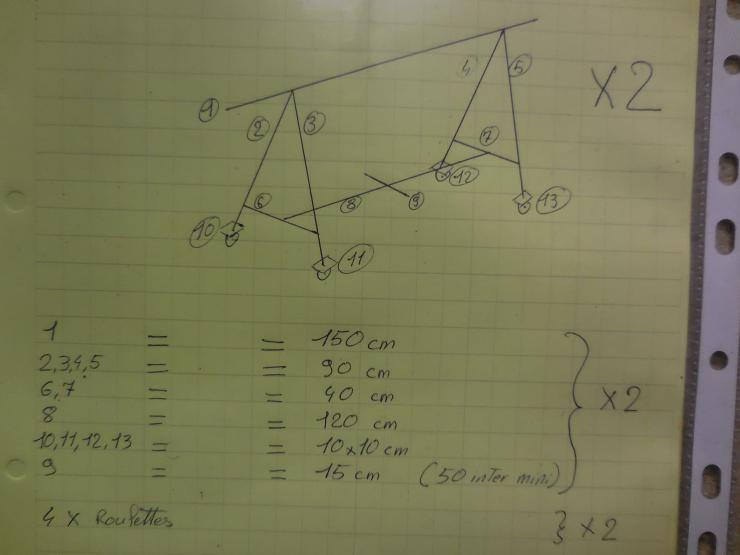 4
5
x2
1
2
3
7
12
6
8
9
13
10
11
1 = = 150 cm
2,3,4,5 = = 90 cm
6,7 = = 40 cm
8 = = 120 cm
x2
10,11,12,13 = = 10x10 cm
9 = = 15 cm (50 inter mini)
4 x Roulettes } x2